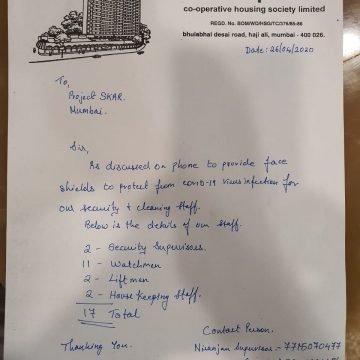 co-operative housing society limited
REGD. No. BOM/WD/HSG/TC/376/85-86
bhulabhai desai road, haji ali, mumbai - 400 026.
Date: 26/04/2020
To,
Project SKAR.
Mumbai.
Sir,
As discussed on phone to provide face
shields to protect from covid-19 virus infection for
our security & cleaning staff.
Below is the details of our staff.
2 - Security Supervisors.
11 - Watchmen
2 - Lift men
2 - House keeping Staff.
17 Total
Contact Person.
Thanking You.
Niranjan Supervisor - 7715070477